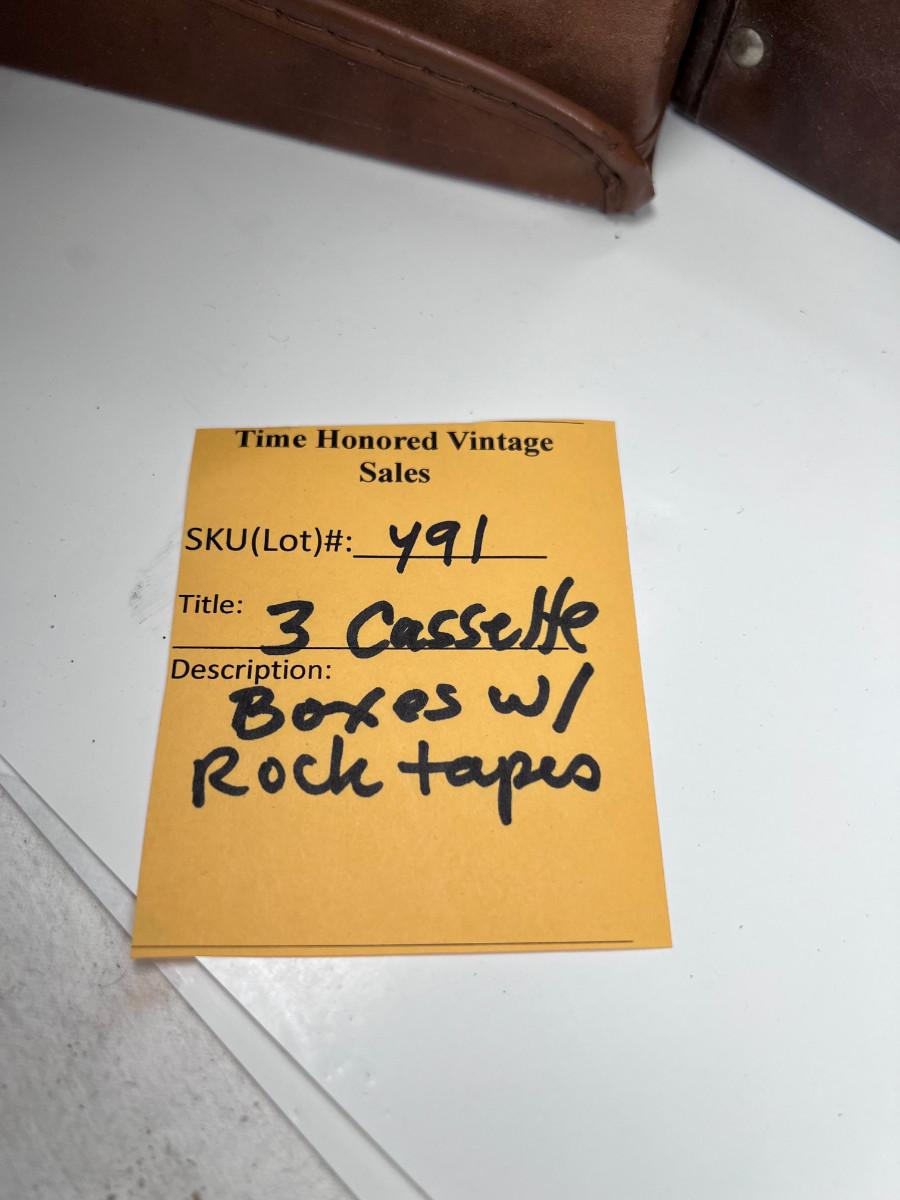 Time Honored Vintage
Sales
SKU(Lot)#: 491
Title: 3 Cassette
Description:
Boxes w/
Rock tapes